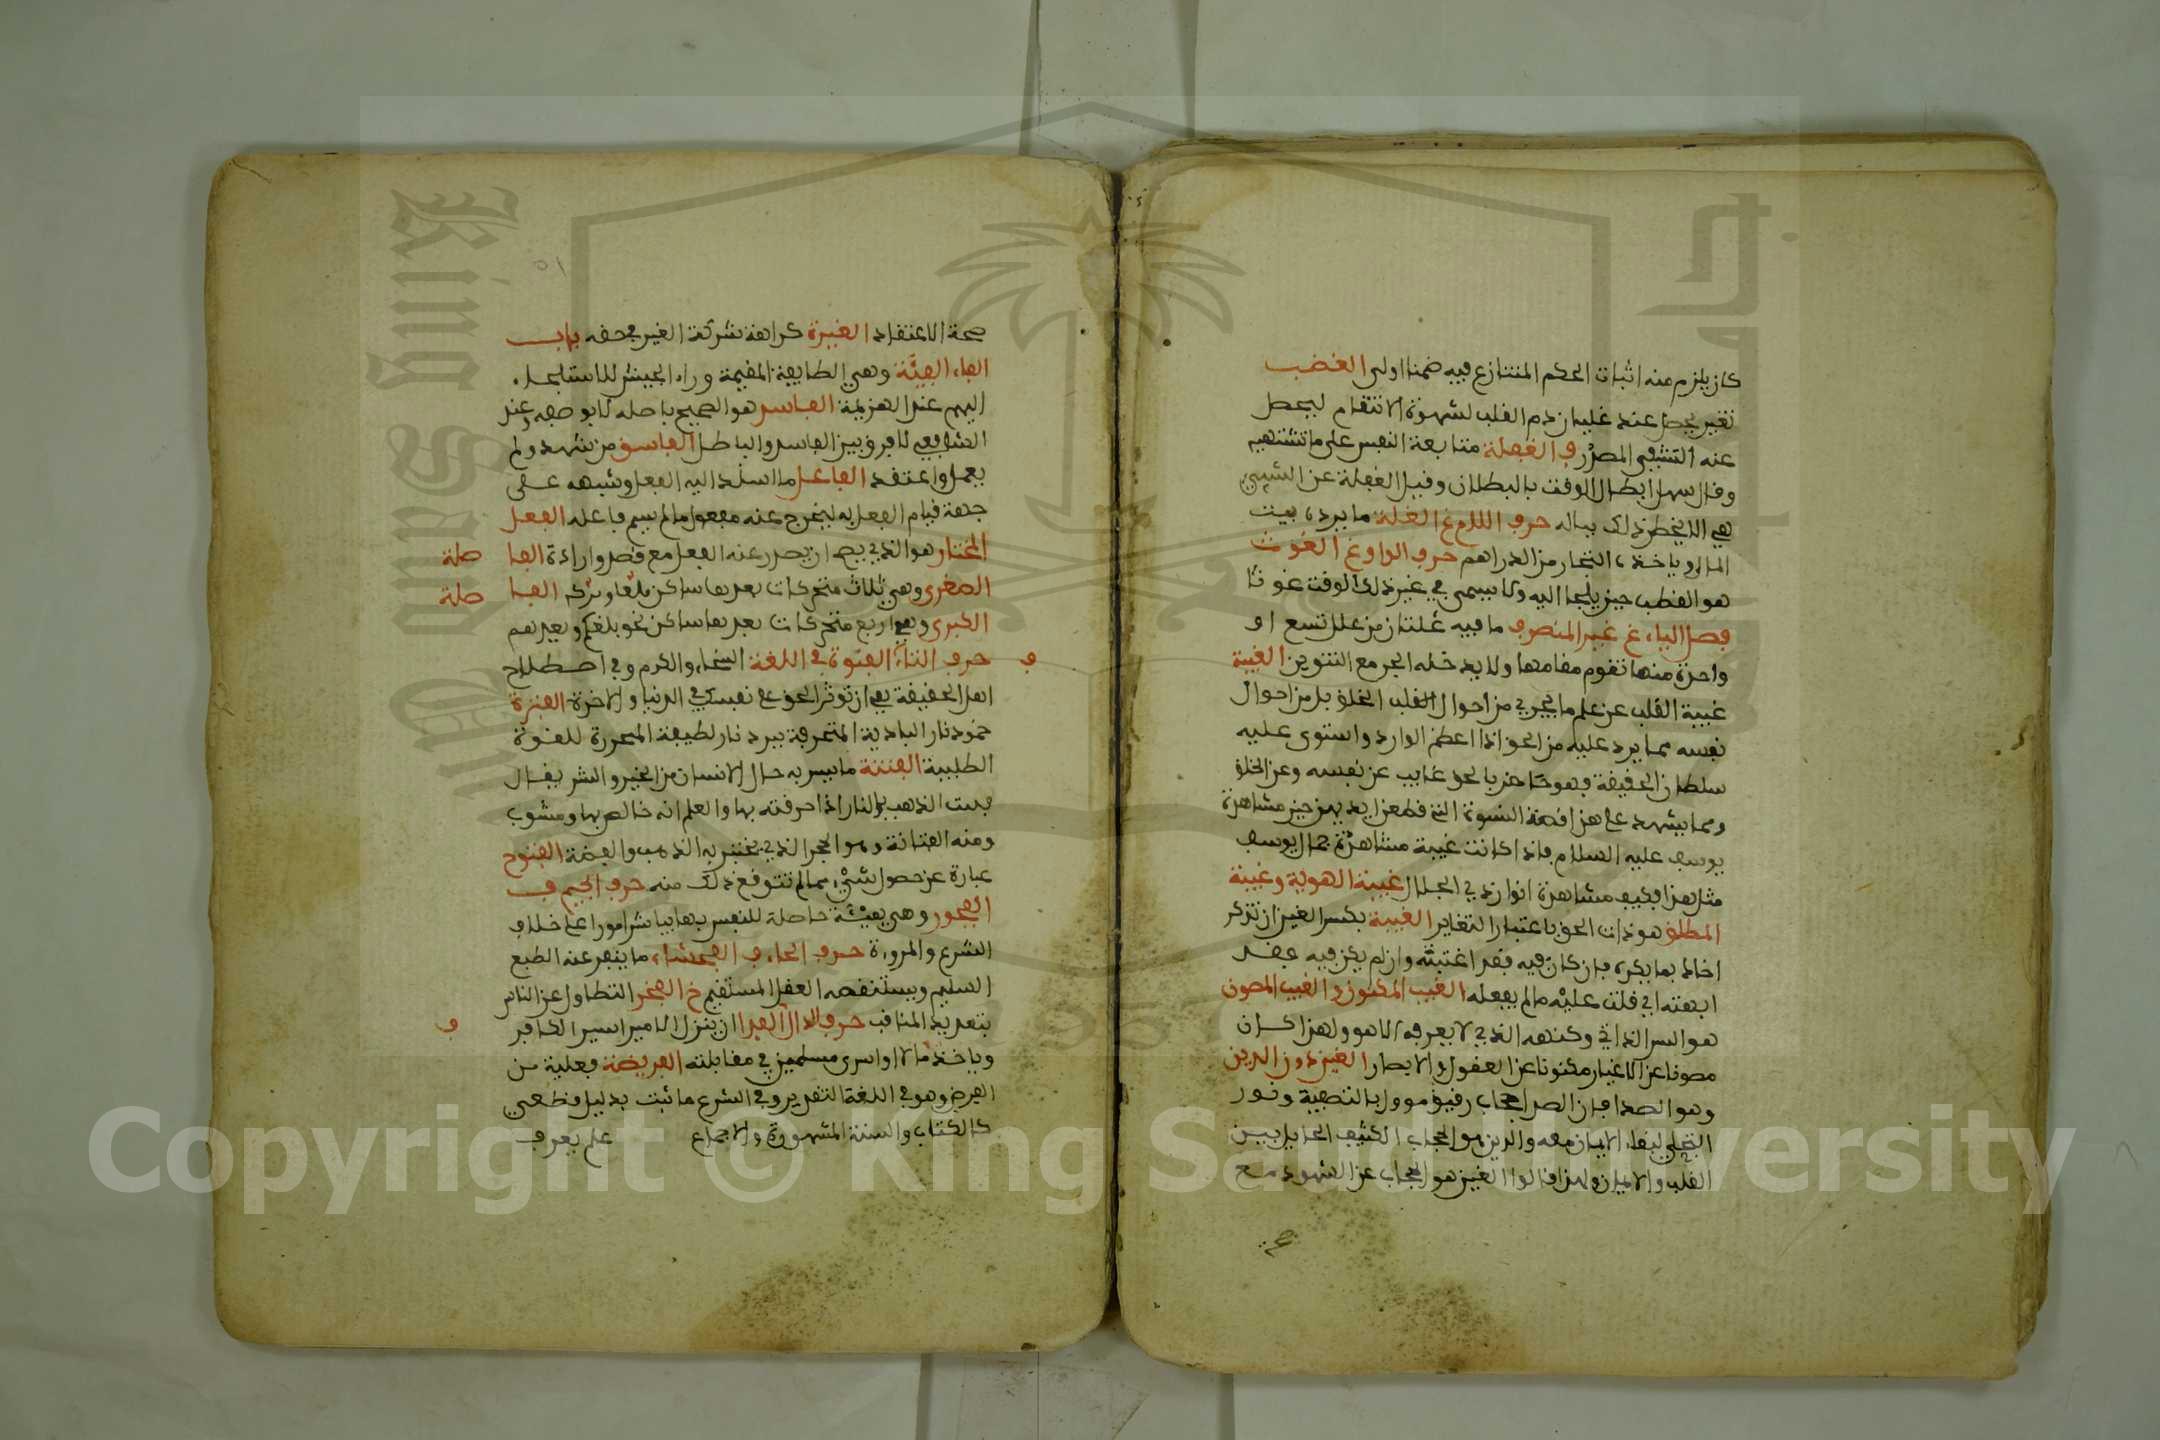 كان يلزم منه اثبات الحكم المتنازع فيه ضمنا اولى الغضب
تغير يحصل عند غليان دم القلب لشهوة الانتقام ليحصل
عنه التشفي للصدر ف الغفلة متابعة النفس على ما تشتهيه
وقال سهل ابطال الوقت بالبطلان وقيل الغفلة عن الشيء
هي الا يخطر ذلك بباله حرف اللام غ الغلة ما يرده بيت
المال وياخذه التجار من الدراهم حرف الواو غ الغوث
هو القطب حين يلجا اليه ولا يسمى في غير ذلك الوقت غوثا
فصل الياء غ غير المنصرف ما فيه علتان من علل تسع او
واحدة منها تقوم مقامها ولا يدخله الجر مع التنوين الغيبة
غيبة القلب عن علم ما يجري من احوال القلب الخلق بل من احوال
نفسه بما يرد عليه من الحق اذا اعظم الوارد واستولى عليه
سلطان الحقيقة فهو حاضر بالحق غايب عن نفسه وعن الخلق
ومما يشهد على هذا قصة النسوة التي قطعن ايديهن حين مشاهدة
يوسف عليه السلام فاذا كانت غيبة مشاهدة جمال يوسف
مثل هذا فكيف مشاهدة انوار ذي الجلال غيبة الهوية وغيبة
المطلق هو ذات الحق باعتبار التغاير الغيبة بكسر الغين ان تذكر
اخاك بما يكره فان كان فيه فقد اغتبته وان لم يكن فيه فقد
ابهته اي قلت عليه ما لم يفعله الغيب المكنون والغيب المصون
هو السر الذاتي وكنهه الذي لا يعرفه الا هو ولهذا كان
مصونا عن الاغيار مكنونا عن العقول والابصار الغين دون الدين
وهو الصدا فان الصدا حجاب رقيق موول بالتصفية ونور
التجلي لبقاء الايمان معه والدين هو الحجاب الكثيف الحايل بين
القلب والايمان ولهذا قالوا الغين هو الحجاب عن الشهود مع
صحة الاعتقاد الغيرة كراهة شركة الغير في حقه باب
الفاء الفئة وهي الطايفة المقيمة وراء الجيش للاستلجاء
اليهم عند الهزيمة الفاسد هو الصحيح باصله لا بوصفه وعند
الشافعي لا فرق بين الفاسد والباطل الفاسق من شهد ولم
يعمل واعتقد الفاعل ما اسند اليه الفعل وشبهه على
جهة قيام الفعل به ليخرج عنه مفعول ما لم يسم فاعله الفعل
المختار هو الذي يصح ان يصدر عنه الفعل مع قصد وارادة الفا صلة
الصغرى وهي ثلاث متحركات بعدها ساكن بلغا ويدكم الفا صلة
الكبرى وهي اربع متحركات بعدها ساكن نحو بلغكم ويعدهم
حرف التاء الفتوة في اللغة السخاء والكرم وفي اصطلاح
اهل الحقيقة هي ان توثر الخلق على نفسك في الدنيا والاخرة الفترة
خمود نار البادية المتحرقة ببرد نار لطيفة المخدرة للقوة
الطلبية الفتنة ما يبين به حال الانسان من الخير والشر يقال
فتنت الذهب بالنار اذا احرقته بها والعلم انه خالص بها ومشوب
ومنه الفتانة وهو الحجر الذي يختبر به الذهب والفضة الفتوح
عبارة عن حصول شيء مما لم تتوقع ذلك منه حرف الجيم ف
الفجور وهي هيئة حاصلة للنفس بها يباشر امورا على خلاف
الشرع والمروءة حرف الحاء ف الفحشاء ما ينفر عنه الطبع
السليم ويستنقصه العقل المستقيم خ الفخر التطاول على الناس
بتعديد المناقب حرف الدال الفدا ان ينزل الامير اسير الكافر
وياخذ مالا او اسرى مسلمين في مقابلته الفريضة فعلية من
الفرض وهو في اللغة التقدير وفي الشرع ما ثبت بدليل قطعي
كالكتاب والسنة المشهورة والاجماع علم يعرف
Copyright © King Saud University